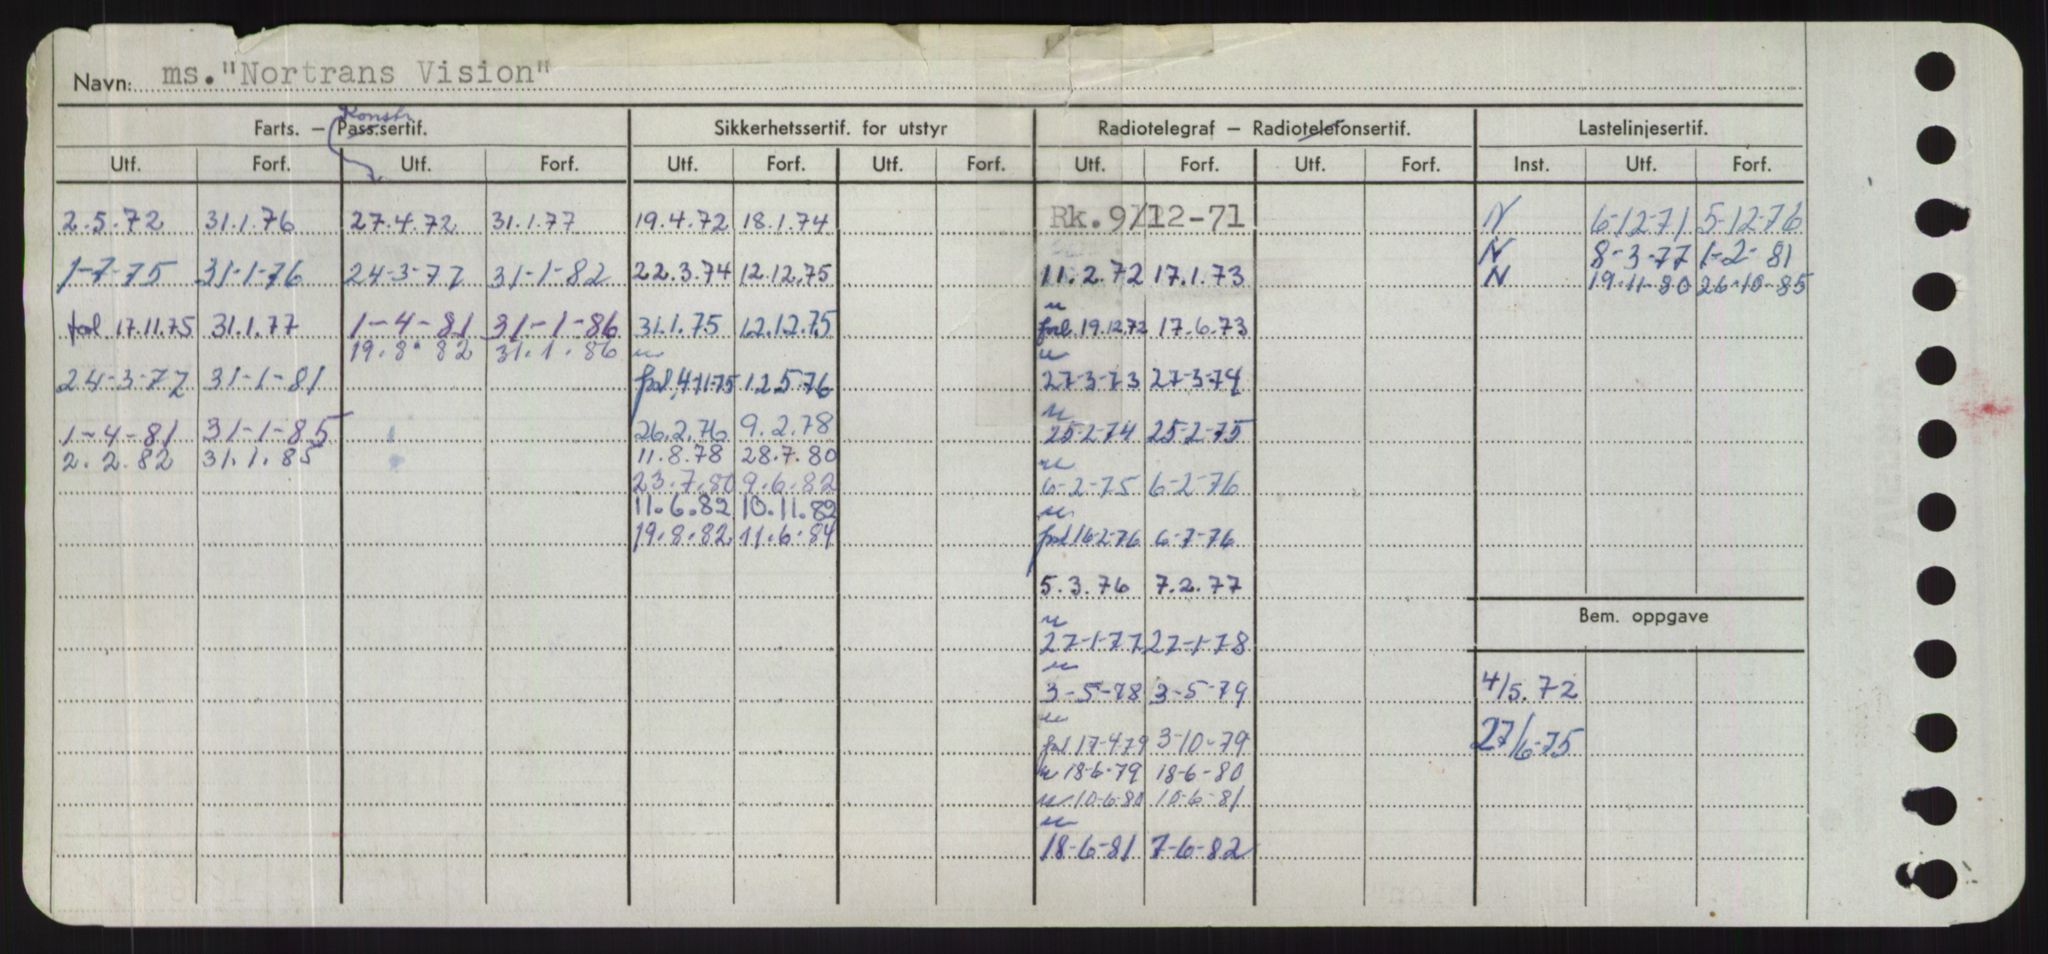 Navn: ms. "Nortrans Vision"
Konstr
Farts. — Pass.sertif. Sikkerhetssertif. for utstyr Radiotelegraf — Radiotelefonsertif. Lastelinjesertif.
Utf. Forf. Utf. Forf. Utf. Forf. Utf. Forf. Utf. Forf. Utf. Forf. Inst. Utf. Forf.
2.5.72 31.1.76 27.4.72 31.1.77 19.4.72 18.1.74 Rk. 9/12-71 N 6-12-71 5-12-76
N 8-3-77 1-2-81
1-7-75 31-1-76 24-3-77 31-1-82 22.3.74 12.12.75 11.2.72 17.1.73 N 19-11-80 26-10-85
u
fol 17.11.75 31.1.77 1-4-81 31-1-86 31.1.75 12.12.75 fol 19.12.72 17.6.73
19.8.82 31.1.86 u u
24-3-77 31-1-81 fol 4-11-75 12.5.76 27-3-73 27-3-74
u
1-4-81 31-1-85 26.2.76 9.2.78 25-2-74 25-2-75
2.2.82 31.1.85 11.8.78 28.7.80 u
23.7.80 9.6.82 6-2-75 6-2-76
11.6.82 10.11.82 u
19.8.82 11.6.84 fol 16-2-76 6-7-76
5.3.76 7.2.77
Bem. oppgave
u
27-1-77 27-1-78
u
3-5-78 3-5-79 4/5.72
u
fol 17-4-79 3-10-79 27/6-75
u 18-6-79 18-6-80
u 10-6-80 10-6-81
u
18-6-81 7-6-82